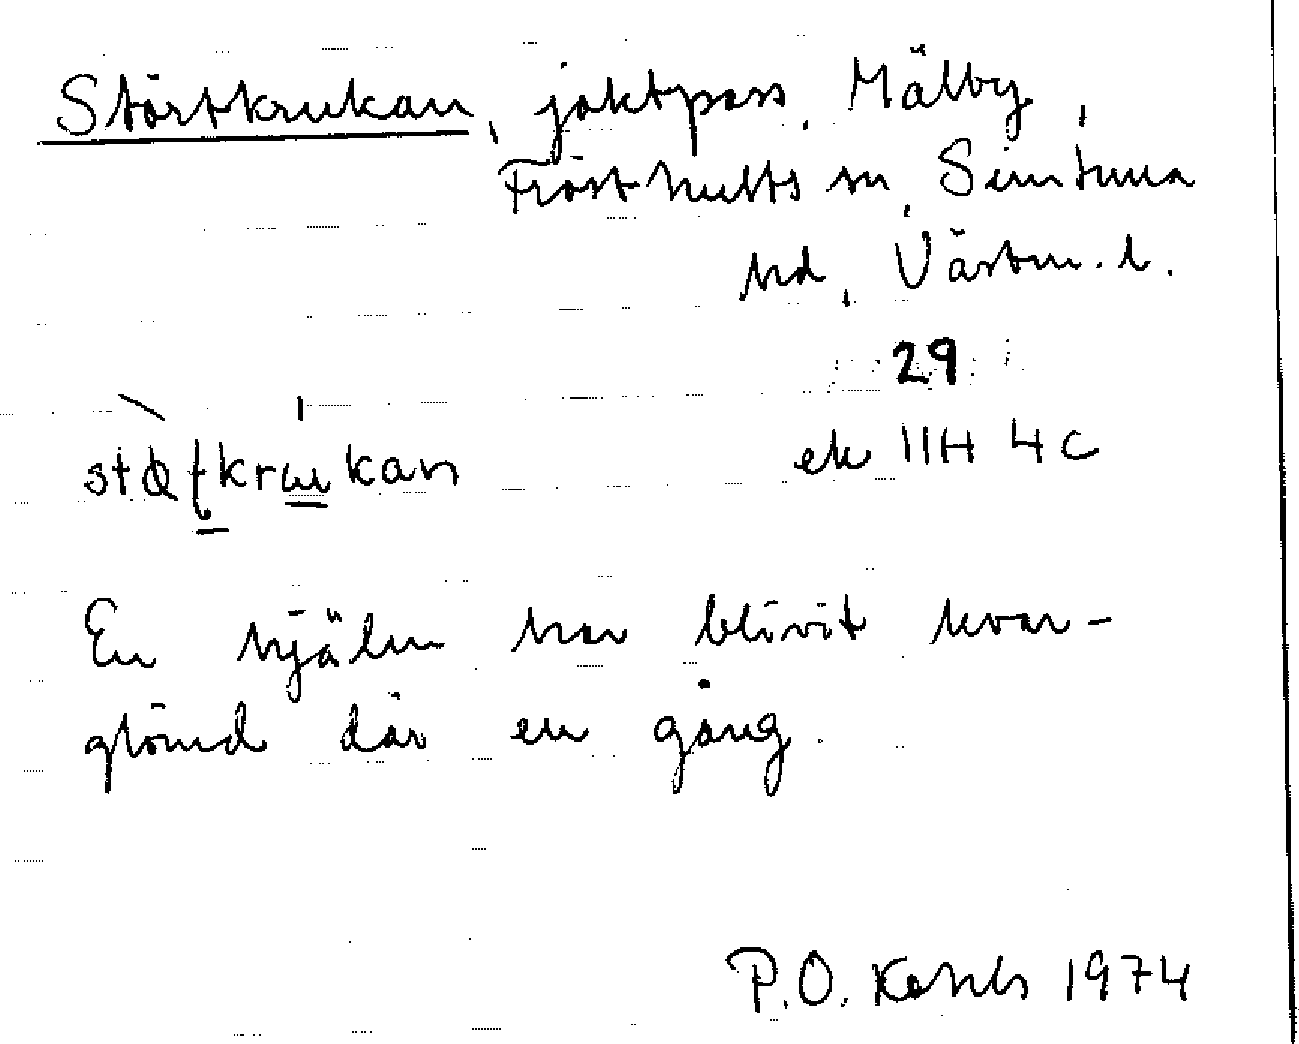 Störtkrukan, jaktpass, Mälby,
Frösthults sn, Simtuna
hd, Västm. l.
29
ek 11H 4c
En hjälm har blivit kvar-
glömd där en gång.
P.O. 1974